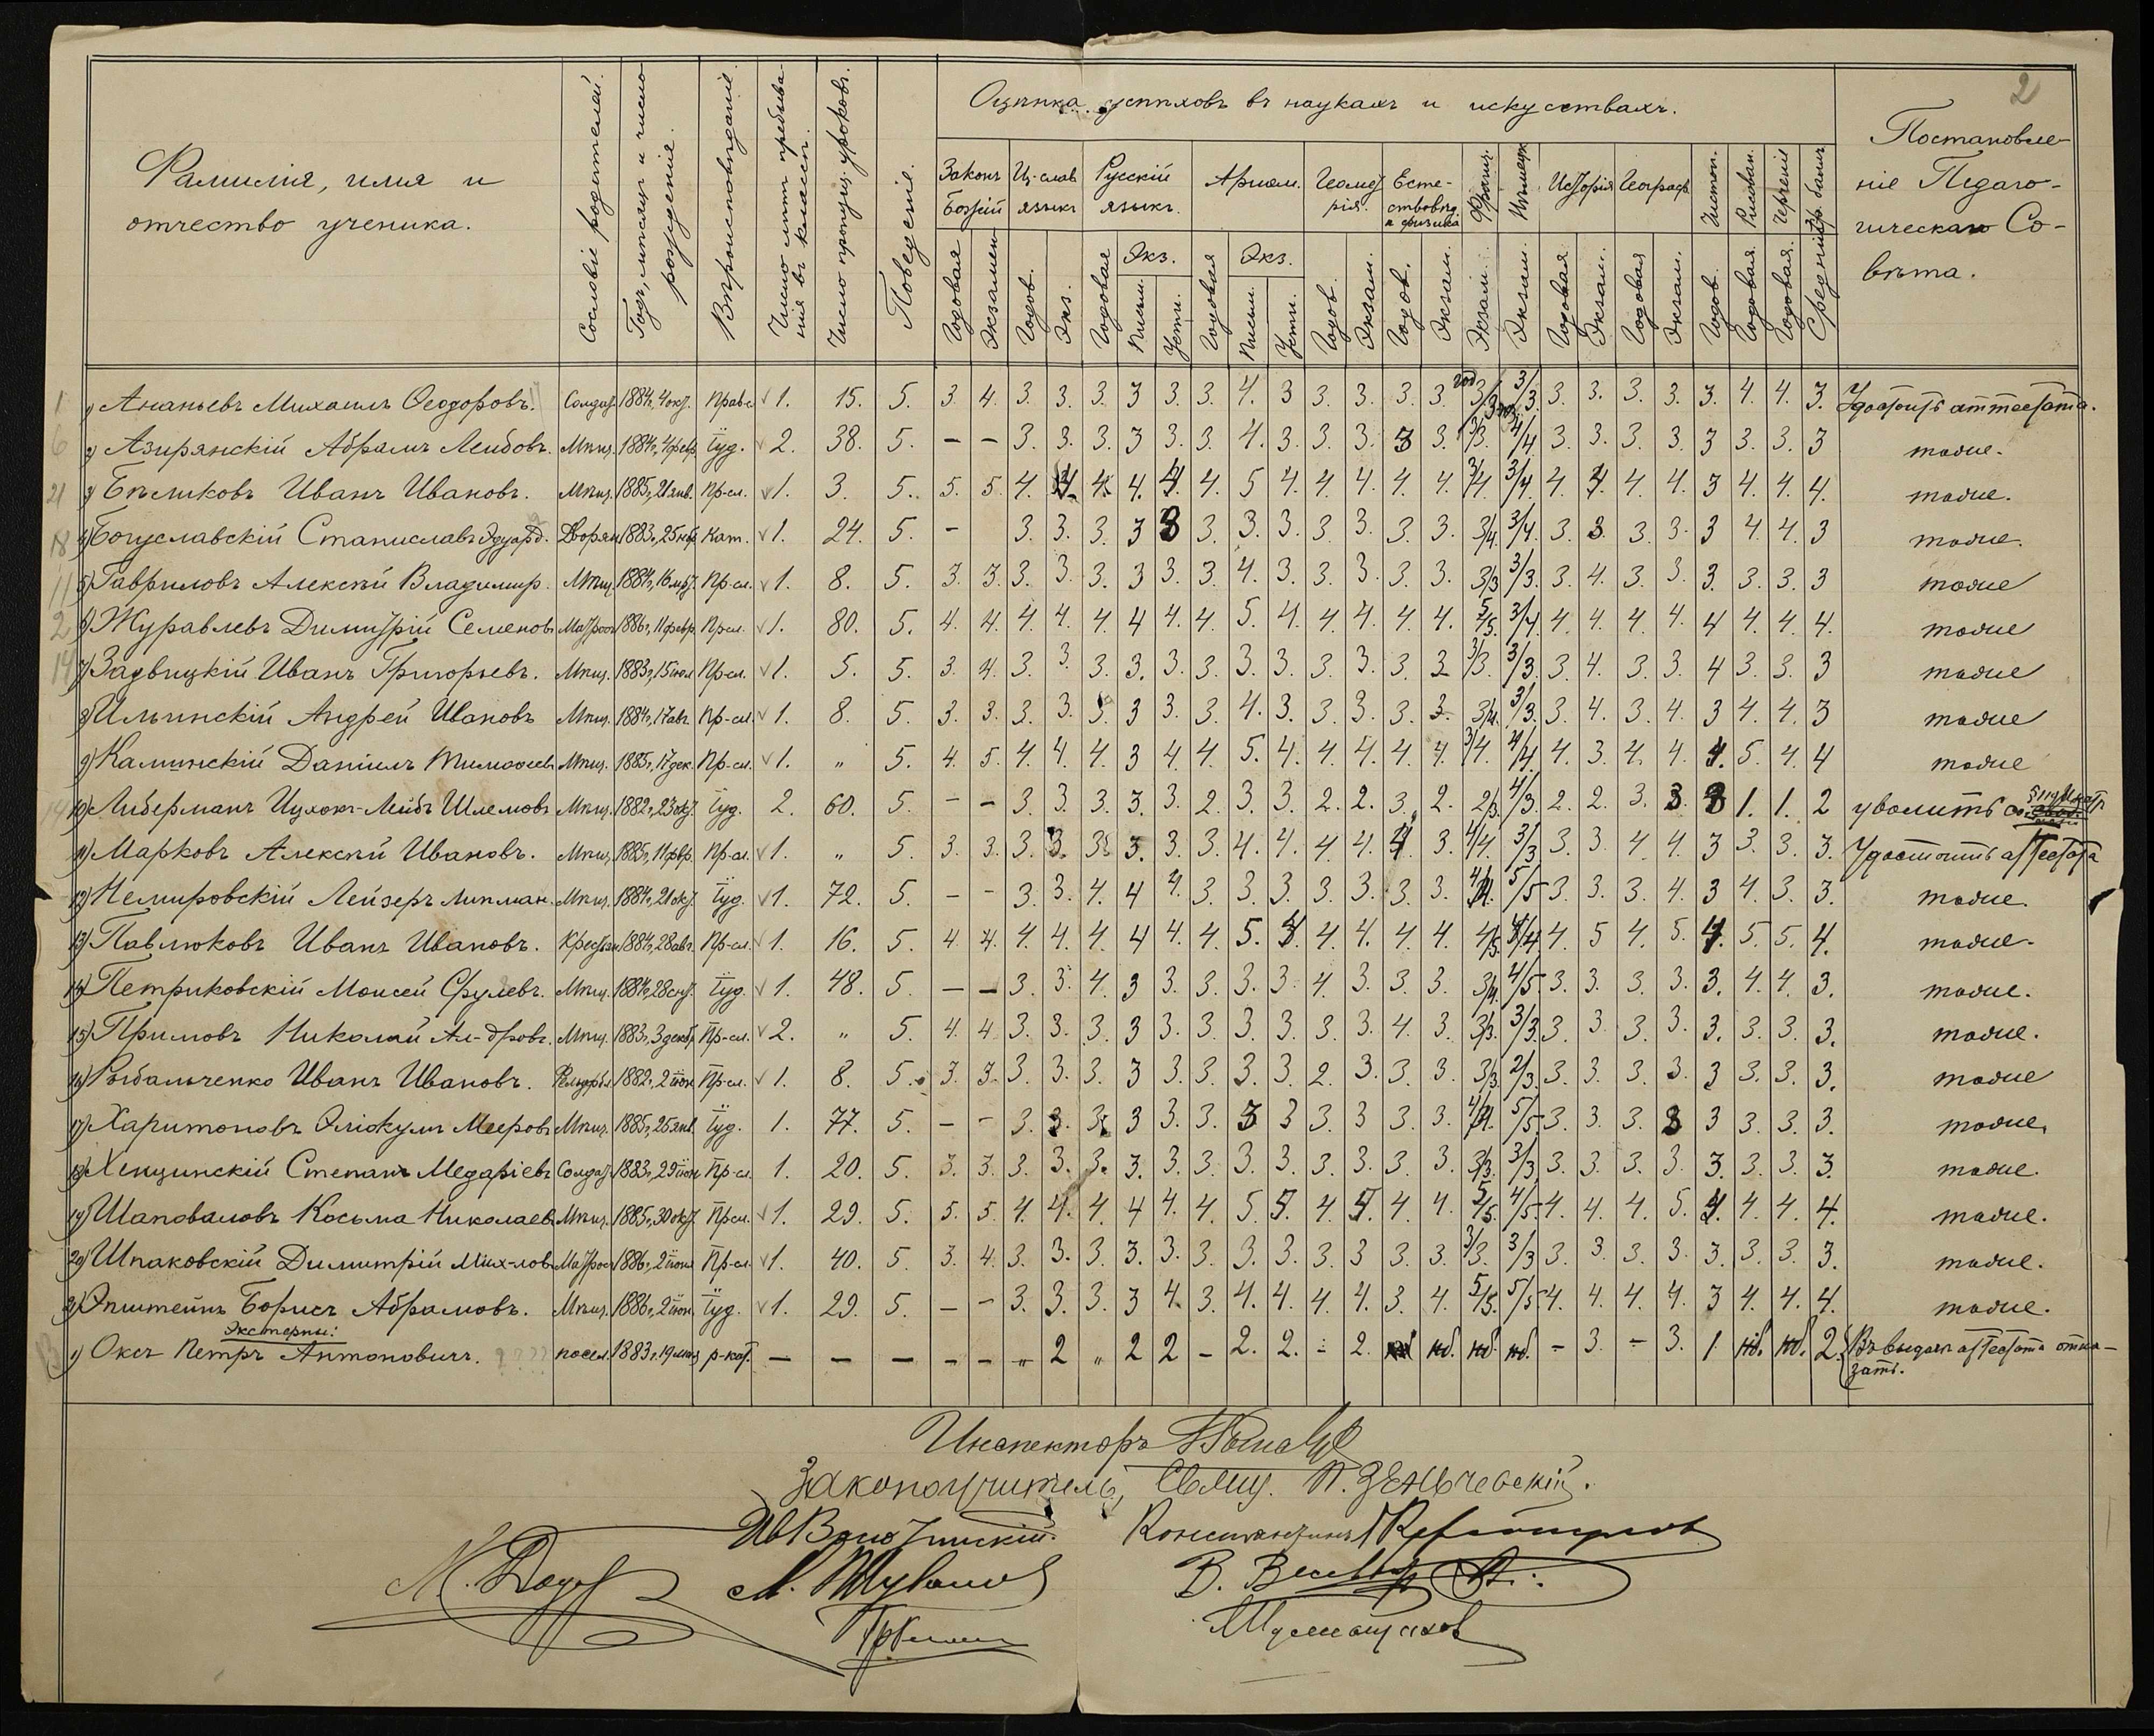 2
Фамилія, имя и отчество ученика.
Сословіе родителей.
Годъ, мѣсяцъ и число рожденія.
Вѣроисповѣданіе.
Число лѣтъ пребыванія въ классѣ.
Число пропущ. уроковъ.
Поведеніе.
Оцѣнка успѣховъ въ наукахъ и искуствахъ.
Законъ Божій Ц-слав языкъ Русскій языкъ. Ариѳм. Геометрія. Естествовѣд. и физика Франц. Нѣмецк Исторія Географ. Чистоп. Рисован. Черченіе Средній бал
Постановленіе Педагогическаго Совѣта.
Экз. Экз.
Годовая Экзамен Годов. Экз. Годовая Письм. Устн. Годовая Письм. Устн. Годов. Экзам. Годов. Экзам. Экзам. Экзам. Годовая Экзам. Годовая Экзам. Годов. Годовая Годовая
1 1) Ананьевъ Михаилъ Ѳеодоровъ. Солдат. 1884, 4 окт. Прав-с. 1. 15. 5. 3. 4. 3. 3. 3. 3 3. 3. 4. 3 3. 3. 3. 3. 3/3 3/3. 3. 3. 3. 3. 3. 4. 4. 3. Удостоить аттестата.
6 2) Азирянскій Абрамъ Лейбовъ. Мѣщ. 1884, 4 февр. Іуд. 2. 38. 5. – – 3. 3. 3. 3 3. 3. 4. 3. 3. 3. 3 3. 3/3. 4/4. 3. 3. 3. 3. 3 3. 3. 3 тоже.
21 3) Бѣликовъ Иванъ Ивановъ. Мѣщ. 1885, 21 янв. Пр-сл. 1. 3. 5. 5. 5. 4. 4. 4. 4. 4. 4. 5 4. 4. 4. 4. 4. 3/4. 3/4. 4. 4. 4. 4. 3 4. 4. 4. тоже.
18 4) Богуславскій Станиславъ Эдуард. Дворян. 1883, 25 нбр. Кат. 1. 24. 5. – 3. 3. 3. 3 3 3. 3. 3. 3. 3. 3. 3. 3/4. 3/4. 3. 3. 3. 3. 3 4. 4. 3 тоже.
11 5) Гавриловъ Алексѣй Владимир. Мѣщ. 1884, 16 мрт. Пр-сл. 1. 8. 5. 3. 3. 3. 3. 3. 3 3. 3. 4. 3. 3. 3. 3. 3. 3/3 3/3. 3. 4. 3. 3. 3. 3. 3. 3 тоже
2 6) Журавлевъ Димитрій Семеновъ Матрос. 1886, 11 февр. Пр-сл. 1. 80. 5. 4. 4. 4. 4. 4. 4 4. 4. 5. 4. 4. 4. 4. 4. 5/5. 3/4. 4. 4. 4. 4. 4 4. 4. 4. тоже
14 7) Задвицкій Иванъ Григорьевъ. Мѣщ. 1883, 15 іюл. Пр-сл. 1. 5. 5. 3. 4. 3. 3. 3. 3. 3. 3. 3. 3. 3. 3. 3. 3 3/3. 3/3. 3. 4. 3. 3. 4 3. 3. 3 тоже
8) Ильинскій Андрей Ивановъ Мѣщ. 1884, 17 авг. Пр-сл. 1. 8. 5. 3. 3. 3. 3. 3. 3 3. 3. 4. 3. 3. 3. 3. 3. 3/4. 3/3. 3. 4. 3. 4. 3 4. 4. 3 тоже
9) Калинскій Даніилъ Тимоѳеев Мѣщ. 1885, 17 дек. Пр-сл. 1. " 5. 4. 5. 4. 4. 4. 3 4. 4. 5. 4. 4. 4. 4. 4. 3/4. 4/4. 4. 3. 4. 4. 4. 5. 4. 4 тоже
14 10) Либерманъ Ицхокъ-Лейбъ Шлемовъ Мѣщ. 1882, 23 окт. Іуд. 2. 60. 5. – – 3. 3. 3. 3. 3. 2. 3. 3. 2. 2. 3. 2. 2/3. 4/3. 2. 2. 3. 3. 3 1. 1. 2 уволить
11) Марковъ Алексѣй Ивановъ. Мѣщ. 1885, 11 фвр. Пр-сл. 1. " 5. 3. 3. 3. 3. 3. 3. 3. 3. 4. 4. 4. 4. 4. 3. 4/4. 3/3 3. 3. 4. 4. 3 3. 3. 3. Удостоить аттестата
12) Немировскій Лейзеръ Липман. Мѣщ. 1884, 21 окт. Іуд. 1. 72. 5. – – 3. 3. 4. 4 4. 3. 3. 3. 3. 3. 3. 3. 4/4. 5/5 3. 3. 3. 4. 3 4. 3. 3. тоже.
13) Павлюковъ Иванъ Ивановъ. Крестьян. 1884, 28 авг. Пр-сл. 1. 16. 5. 4. 4. 4. 4. 4. 4 4. 4. 5. 4. 4. 4. 4. 4. 4/5 4/4. 4. 5 4. 5. 4. 5. 5. 4. тоже.
14) Петриковскій Моисей Срулевъ. Мѣщ. 1884, 28 снт. Іуд. 1. 48. 5. – – 3. 3. 4. 3 3. 3. 3. 3. 4. 3. 3. 3. 3/4. 4/5 3. 3. 3. 3. 3. 4. 4. 3. тоже.
15) Примовъ Николай Ал-дровъ. Мѣщ. 1883, 3 декб. Пр-сл. 2. " 5. 4. 4. 3. 3. 3. 3 3. 3. 3. 3. 3. 3. 4. 3. 3/3. 3/3. 3. 3. 3. 3. 3. 3. 3. 3. тоже.
16) Рыбальченко Иванъ Ивановъ. Фельдфеб. 1882, 2 іюн. Пр-сл. 1. 8. 5. 3. 3. 3. 3. 3. 3 3. 3. 3. 3. 2. 3. 3. 3. 3/3. 2/3. 3. 3. 3. 3. 3 3. 3. 3. тоже
17) Харитоновъ Мееровъ Мѣщ. 1885, 25 янв. Іуд. 1. 77. 5. – – 3. 3. 3. 3 3. 3. 3 3 3. 3 3. 3. 4/4. 5/5 3. 3. 3. 3 3 3. 3. 3. тоже.
18) Хенцинскій Степанъ Медаріевъ Солдат. 1883, 29 іюн. Пр-сл. 1. 20. 5. 3. 3. 3. 3. 3. 3. 3. 3. 3. 3. 3. 3. 3. 3. 3/3. 3/3. 3. 3. 3. 3. 3. 3. 3. 3. тоже.
19) Шаповаловъ Косьма Николаев. Мѣщ. 1885, 30 окт. Пр-сл. 1. 29. 5. 5. 5. 4. 4. 4. 4 4. 4. 5. 5. 4. 4. 4. 4. 5/5. 4/5 4. 4. 4. 5. 4. 4. 4. 4. тоже.
20) Шпаковскій Димитрій Мих-лов. Матрос. 1886, 2 іюня Пр-сл. 1. 40. 5. 3. 4. 3. 3. 3. 3. 3. 3. 3. 3. 3. 3 3. 3. 3/3. 3/3 3. 3. 3. 3. 3. 3. 3. 3. тоже.
21) Эпштейнъ Борисъ Абрамовъ. Мѣщ. 1886, 2 іюн. Іуд. 1. 29. 5. – – 3. 3. 3. 3 4. 3. 4. 4. 4. 4. 3. 4. 5/5. 5/5 4. 4. 4. 4. 3 4. 4. 4. тоже.
Экстерны:
1) Оксъ Петръ Антоновичъ. посел. 1883, 19 р-кат. – – – – – " 2 " 2 2 – 2. 2. – 2. нб нб. нб. нб. – 3. – 3. 1. нб. нб. 2. Въ выдачѣ аттестата отказать.
Инспекторъ
Законоучитель, Свящ. П. Зеньчевскій.